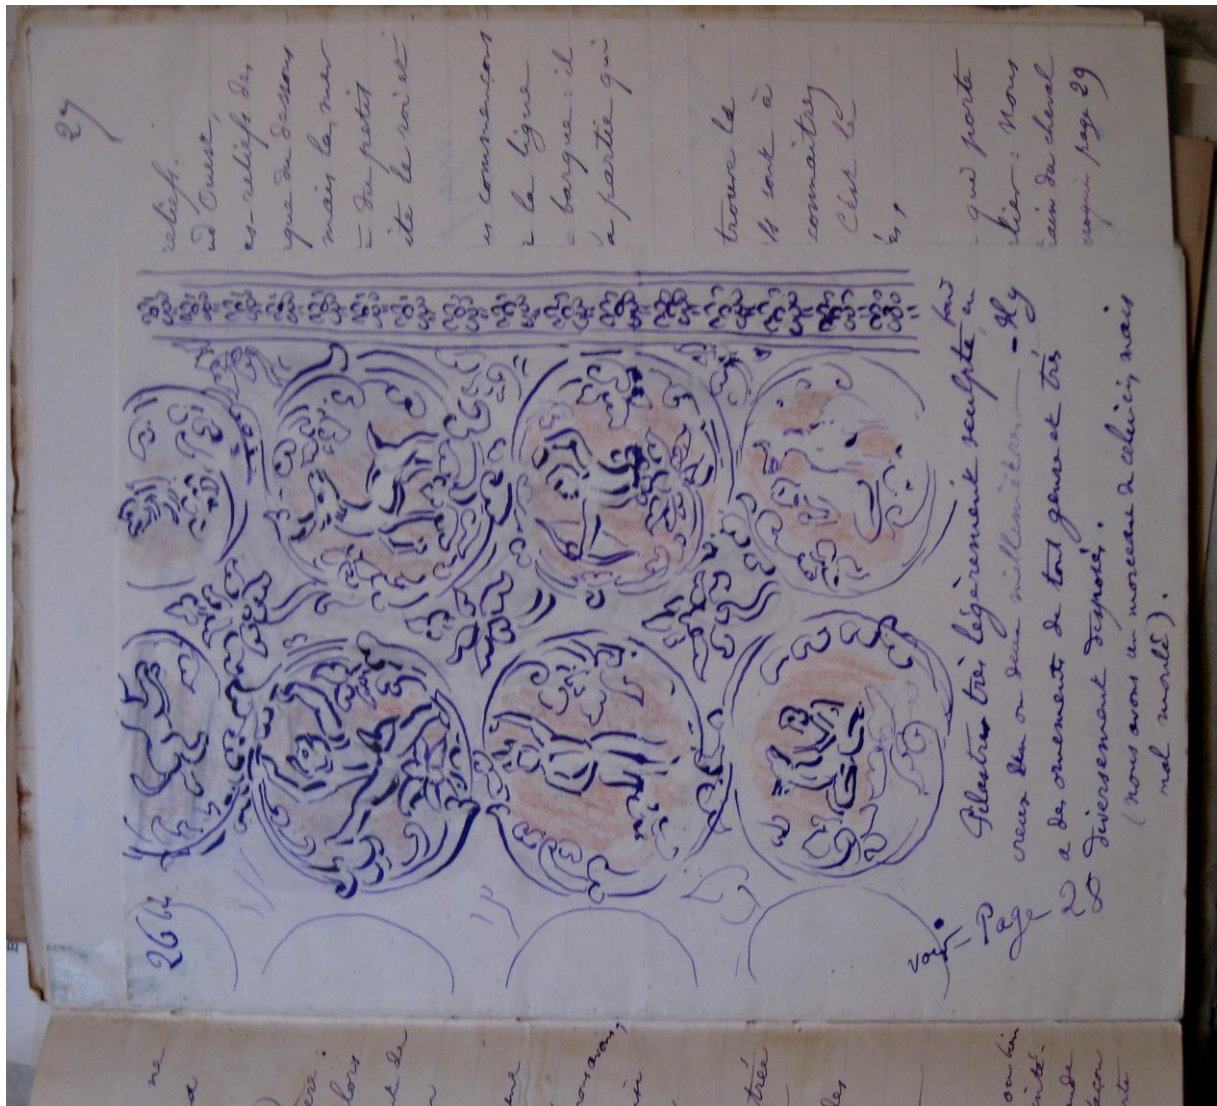 27
reliefs.
d Ouest,
es-reliefs des
que du dessous
mais la mer
du petit
ite le roi et
s commençons
la ligne
barque : il
a partie qui
trouve la
ils sont à
connaitrez
C'est là
és,
qui porte
lier : Nous
ain du cheval
croquis page 29
26 bis
Pilastres très légèrement sculptés, tout en
creux deux ou deux millimètres - Il y
a des ornements de tout genre et très
diversement disposés.
(nous avons un morceau de celui-ci, mais
mal moulé).
voir
Page
20
ne
lors
de
nous avons,
trée
les
ou bien
façon